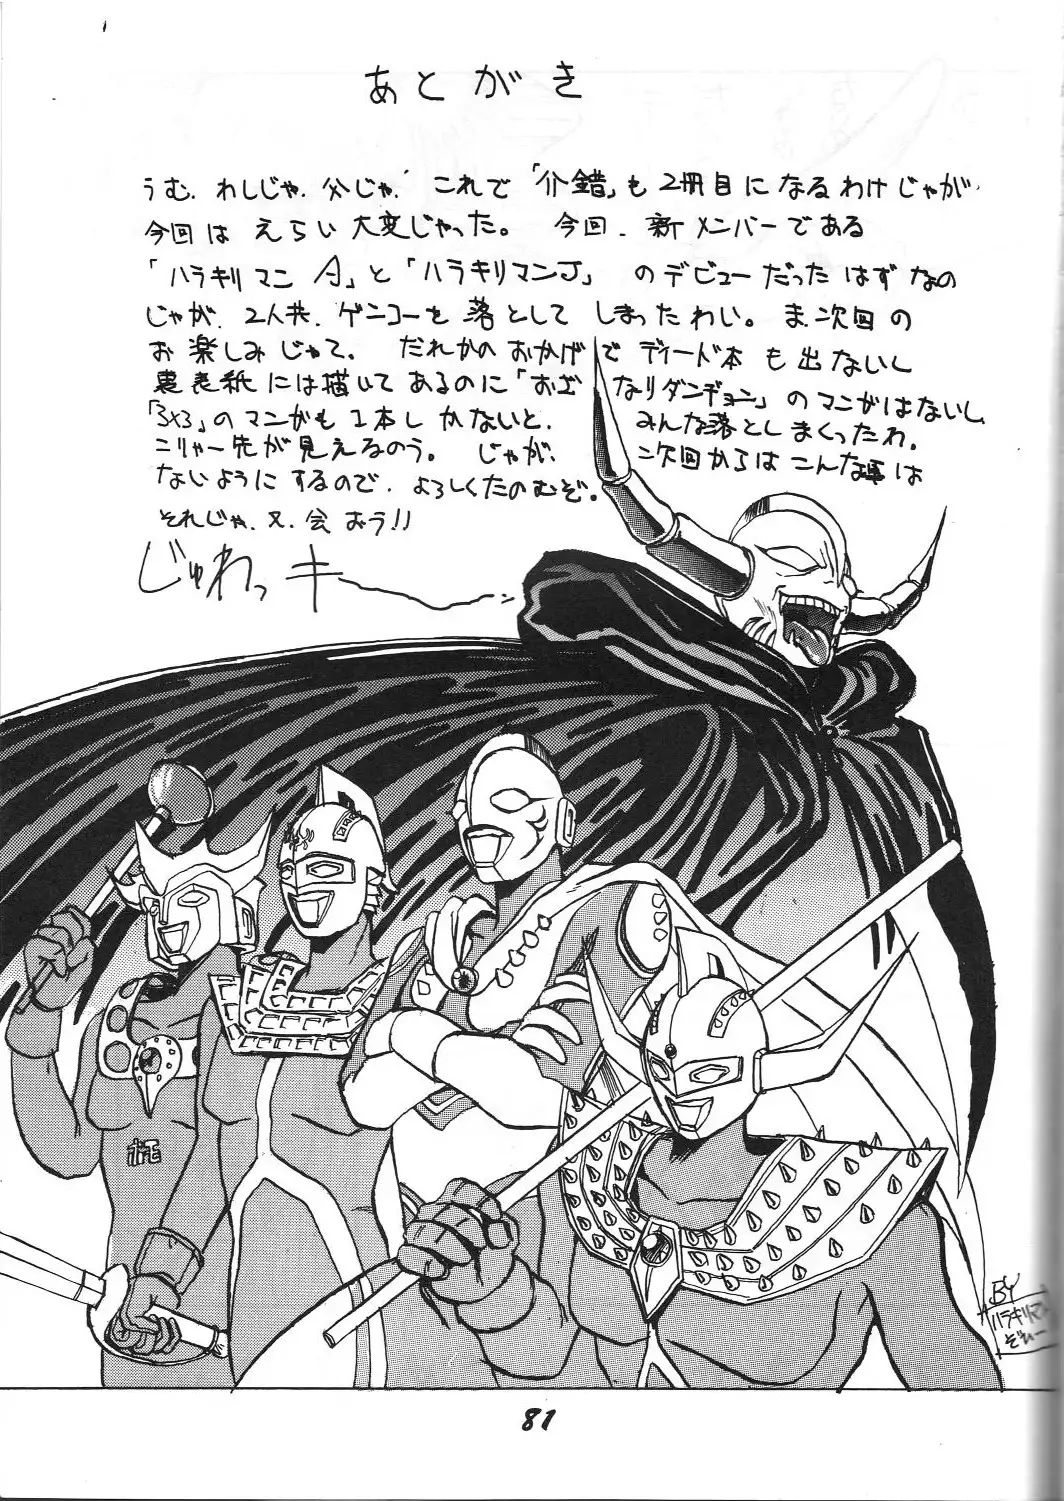 あとがき
うむ、わしじゃ、父じゃ、これで「介錯」も2冊目になるわけじゃが、
今回はえらい大変じゃった。今回、新メンバーである
「ハラキリマンA」と「ハラキリマンJ」のデビューだったはずなの
じゃが、2人共、ゲンコーを落としてしまったわい。ま、次回の
お楽しみじゃて。だれかのおかげでディード本も出ないし
裏表紙には描いてあるのに「おざなりダンヂョン」のマンガはないし、
「3×3」のマンガも1本しかないと、みんな落としまくったわ。
こりゃー先が見えるのう。じゃが、次回からはこんな事は
ないようにするので、よろしくたのむぞ。
それじゃ、又、会おう!!
じゅわっキー
ホモ
BY
ハラキリマン
ぞひー
81